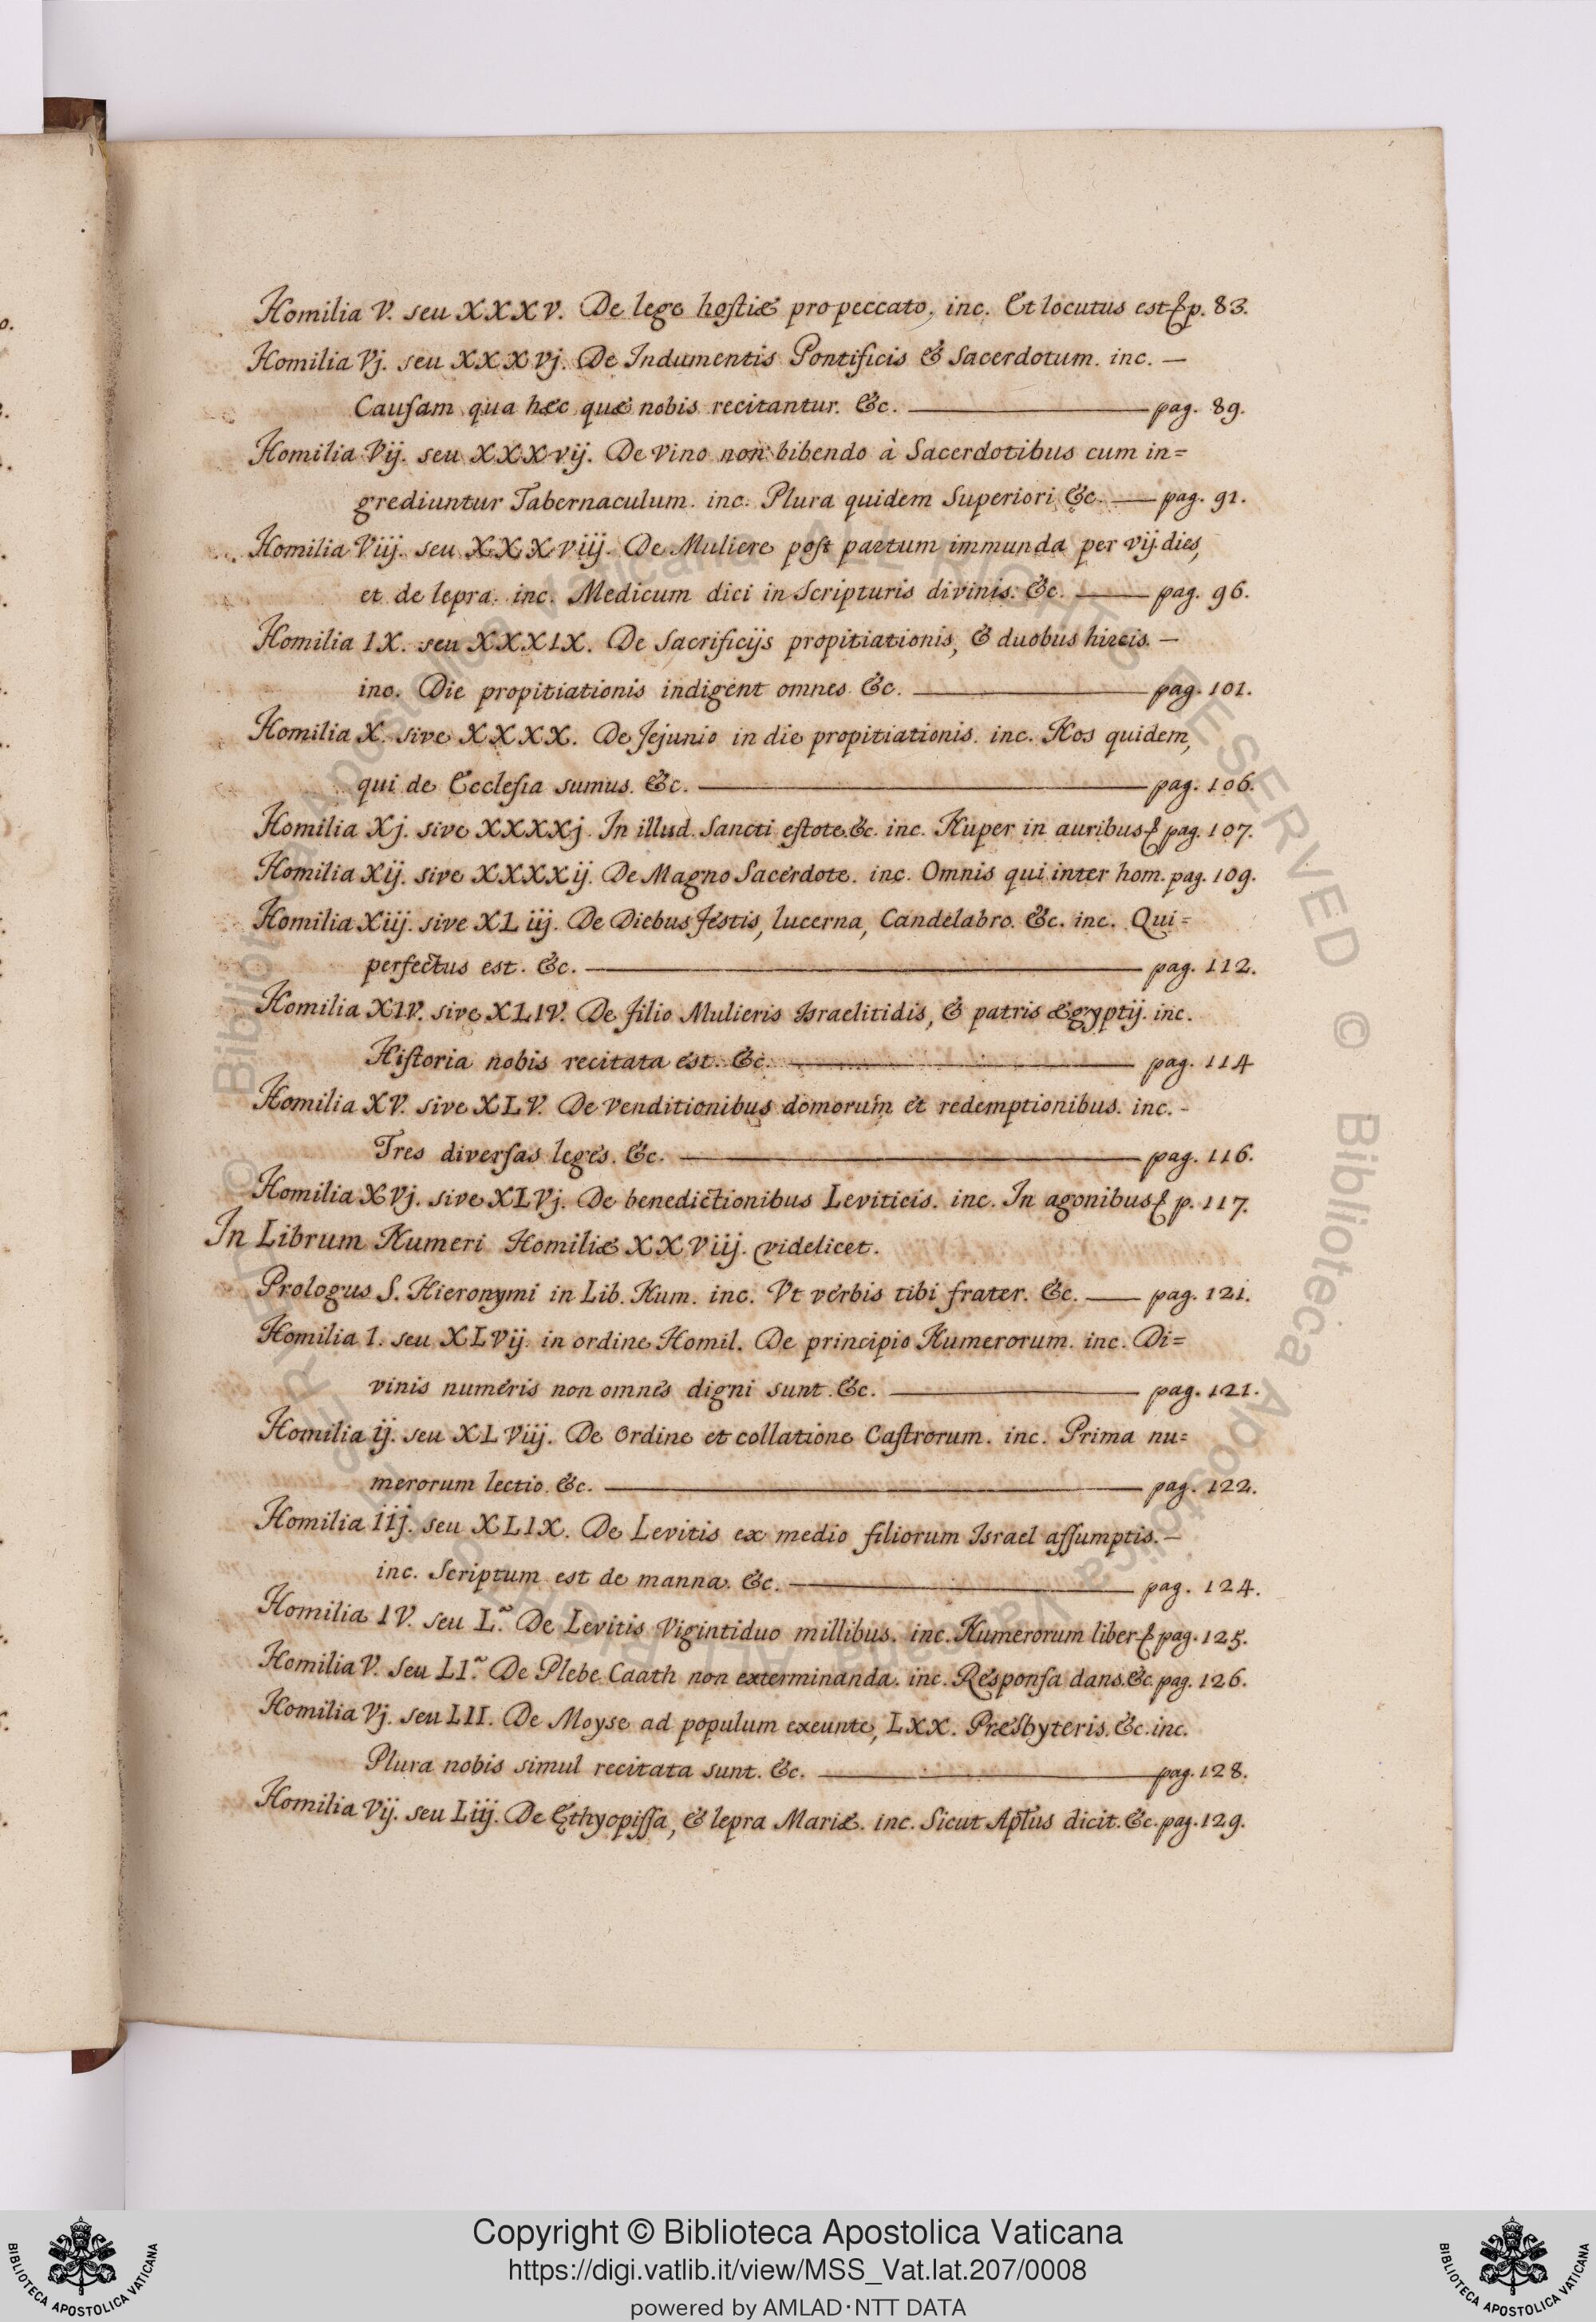 Homilia V. seu XXXV. De lege hostiæ pro peccato, inc. Et locutus est &c. p. 83.
Homilia Vj. seu XXXvj. De Indumentis Pontificis & Sacerdotum. inc. —
Causam qua hæc quæ nobis recitantur. &c. — pag. 89.
Homilia Vij. seu XXXvij. De vino non bibendo à Sacerdotibus cum in=
grediuntur Tabernaculum. inc. Plura quidem Superiori &c. — pag. 91.
Homilia Viij. seu XXXviij. De Muliere post partum immunda per vij. dies,
et de lepra. inc. Medicum dici in Scripturis divinis. &c. — pag. 96.
Homilia IX. seu XXXIX. De Sacrificijs propitiationis, & duobus hircis. —
inc. Die propitiationis indigent omnes &c. — pag. 101.
Homilia X. sive XXXX. De Jejunio in die propitiationis. inc. Nos quidem,
qui de Ecclesia sumus. &c. — pag. 106.
Homilia Xj. sive XXXXj. In illud. Sancti estote. &c. inc. Nuper in auribus &c. pag. 107.
Homilia Xij. sive XXXXij. De Magno Sacerdote. inc. Omnis qui inter hom. pag. 109.
Homilia Xiij. sive XLiij. De Diebus festis, lucerna, Candelabro. &c. inc. Qui=
perfectus est. &c. — pag. 112.
Homilia XIV. sive XLIV. De filio Mulieris Israelitidis, & patris ægyptij. inc.
Historia nobis recitata est. &c. — pag. 114
Homilia XV. sive XLV. De venditionibus domorum et redemptionibus. inc. -
Tres diversas leges. &c. — pag. 116.
Homilia XVj. sive XLVj. De benedictionibus Leviticis. inc. In agonibus &c. p. 117.
In Librum Numeri Homiliæ XXViij. videlicet.
Prologus S. Hieronymi in Lib. Num. inc. Vt verbis tibi frater. &c. — pag. 121.
Homilia 1. seu XLVij. in ordine Homil. De principio Numerorum. inc. Di=
vinis numeris non omnes digni sunt. &c. — pag. 121.
Homilia ij. seu XLViij. De Ordine et collatione Castrorum. inc. Prima nu=
merorum lectio. &c. — pag. 122.
Homilia iij. seu XLIX. De Levitis ex medio filiorum Israel assumptis. —
inc. Scriptum est de manna. &c. — pag. 124.
Homilia IV. seu L.ª De Levitis Vigintiduo millibus. inc. Numerorum liber &c. pag. 125.
Homilia V. seu LI.ª De Plebe Caath non exterminanda. inc. Responsa dans. &c. pag. 126.
Homilia Vj. seu LII. De Moyse ad populum exeunte, LXX. Præsbyteris. &c. inc.
Plura nobis simul recitata sunt. &c. — pag. 128.
Homilia Vij. seu Liij. De Ethyopissa, & lepra Mariæ. inc. Sicut Aptus dicit. &c. pag. 129.
Copyright © Biblioteca Apostolica Vaticana
https://digi.vatlib.it/view/MSS_Vat.lat.207/0008
powered by AMLAD·NTT DATA
BIBLIOTECA APOSTOLICA VATICANA
BIBLIOTECA APOSTOLICA VATICANA